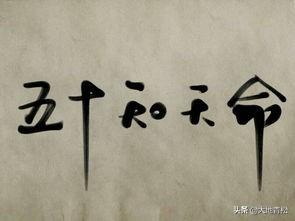 五十知天命
头条 @大地青松